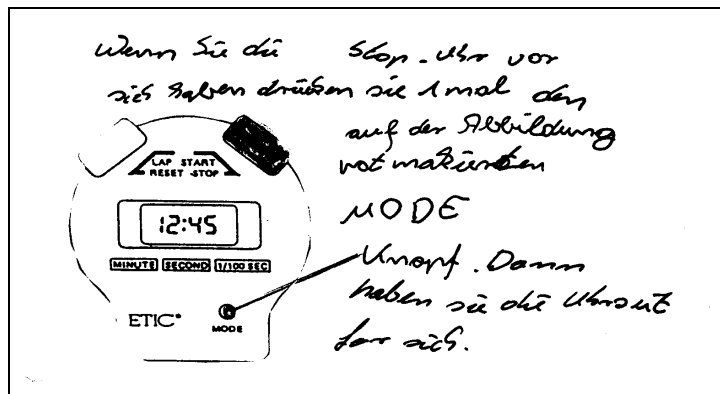 Wenn Sie die Stop-Uhr vor
sich haben drücken sie 1 mal den
auf der Abbildung
rot makierten
MODE
Knopf. Dann
haben sie die Uhrzeit
for sich.
LAP START
RESET -STOP
12:45
MINUTE SECOND 1/100 SEC
ETIC
MODE